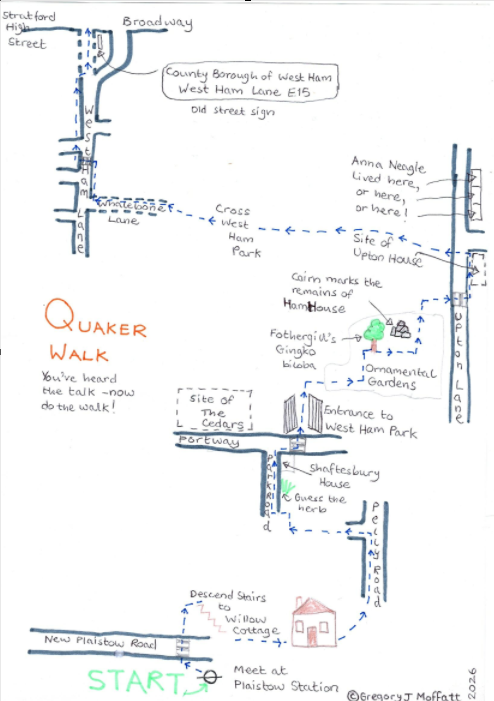 Stratford
High
Street
Broadway
County Borough of West Ham
West Ham Lane E15
Old street sign
West Ham Lane
Whalebone
Lane
Cross
West
Ham
Park
Anna Neagle
Lived here,
or here,
or here!
Site of
Upton House
Upton Lane
Cairn marks the
remains of
Ham House
Fothergill's
Gingko
biloba
Ornamental
Gardens
QUAKER
WALK
You've heard
the talk - now
do the walk!
Site of
The
Cedars
Portway
Entrance to
West Ham Park
Park Road
Shaftesbury
House
Guess the
herb
Pelly Road
Descend Stairs
to
Willow
Cottage
New Plaistow Road
Meet at
Plaistow Station
START
©Gregory J Moffatt
2026